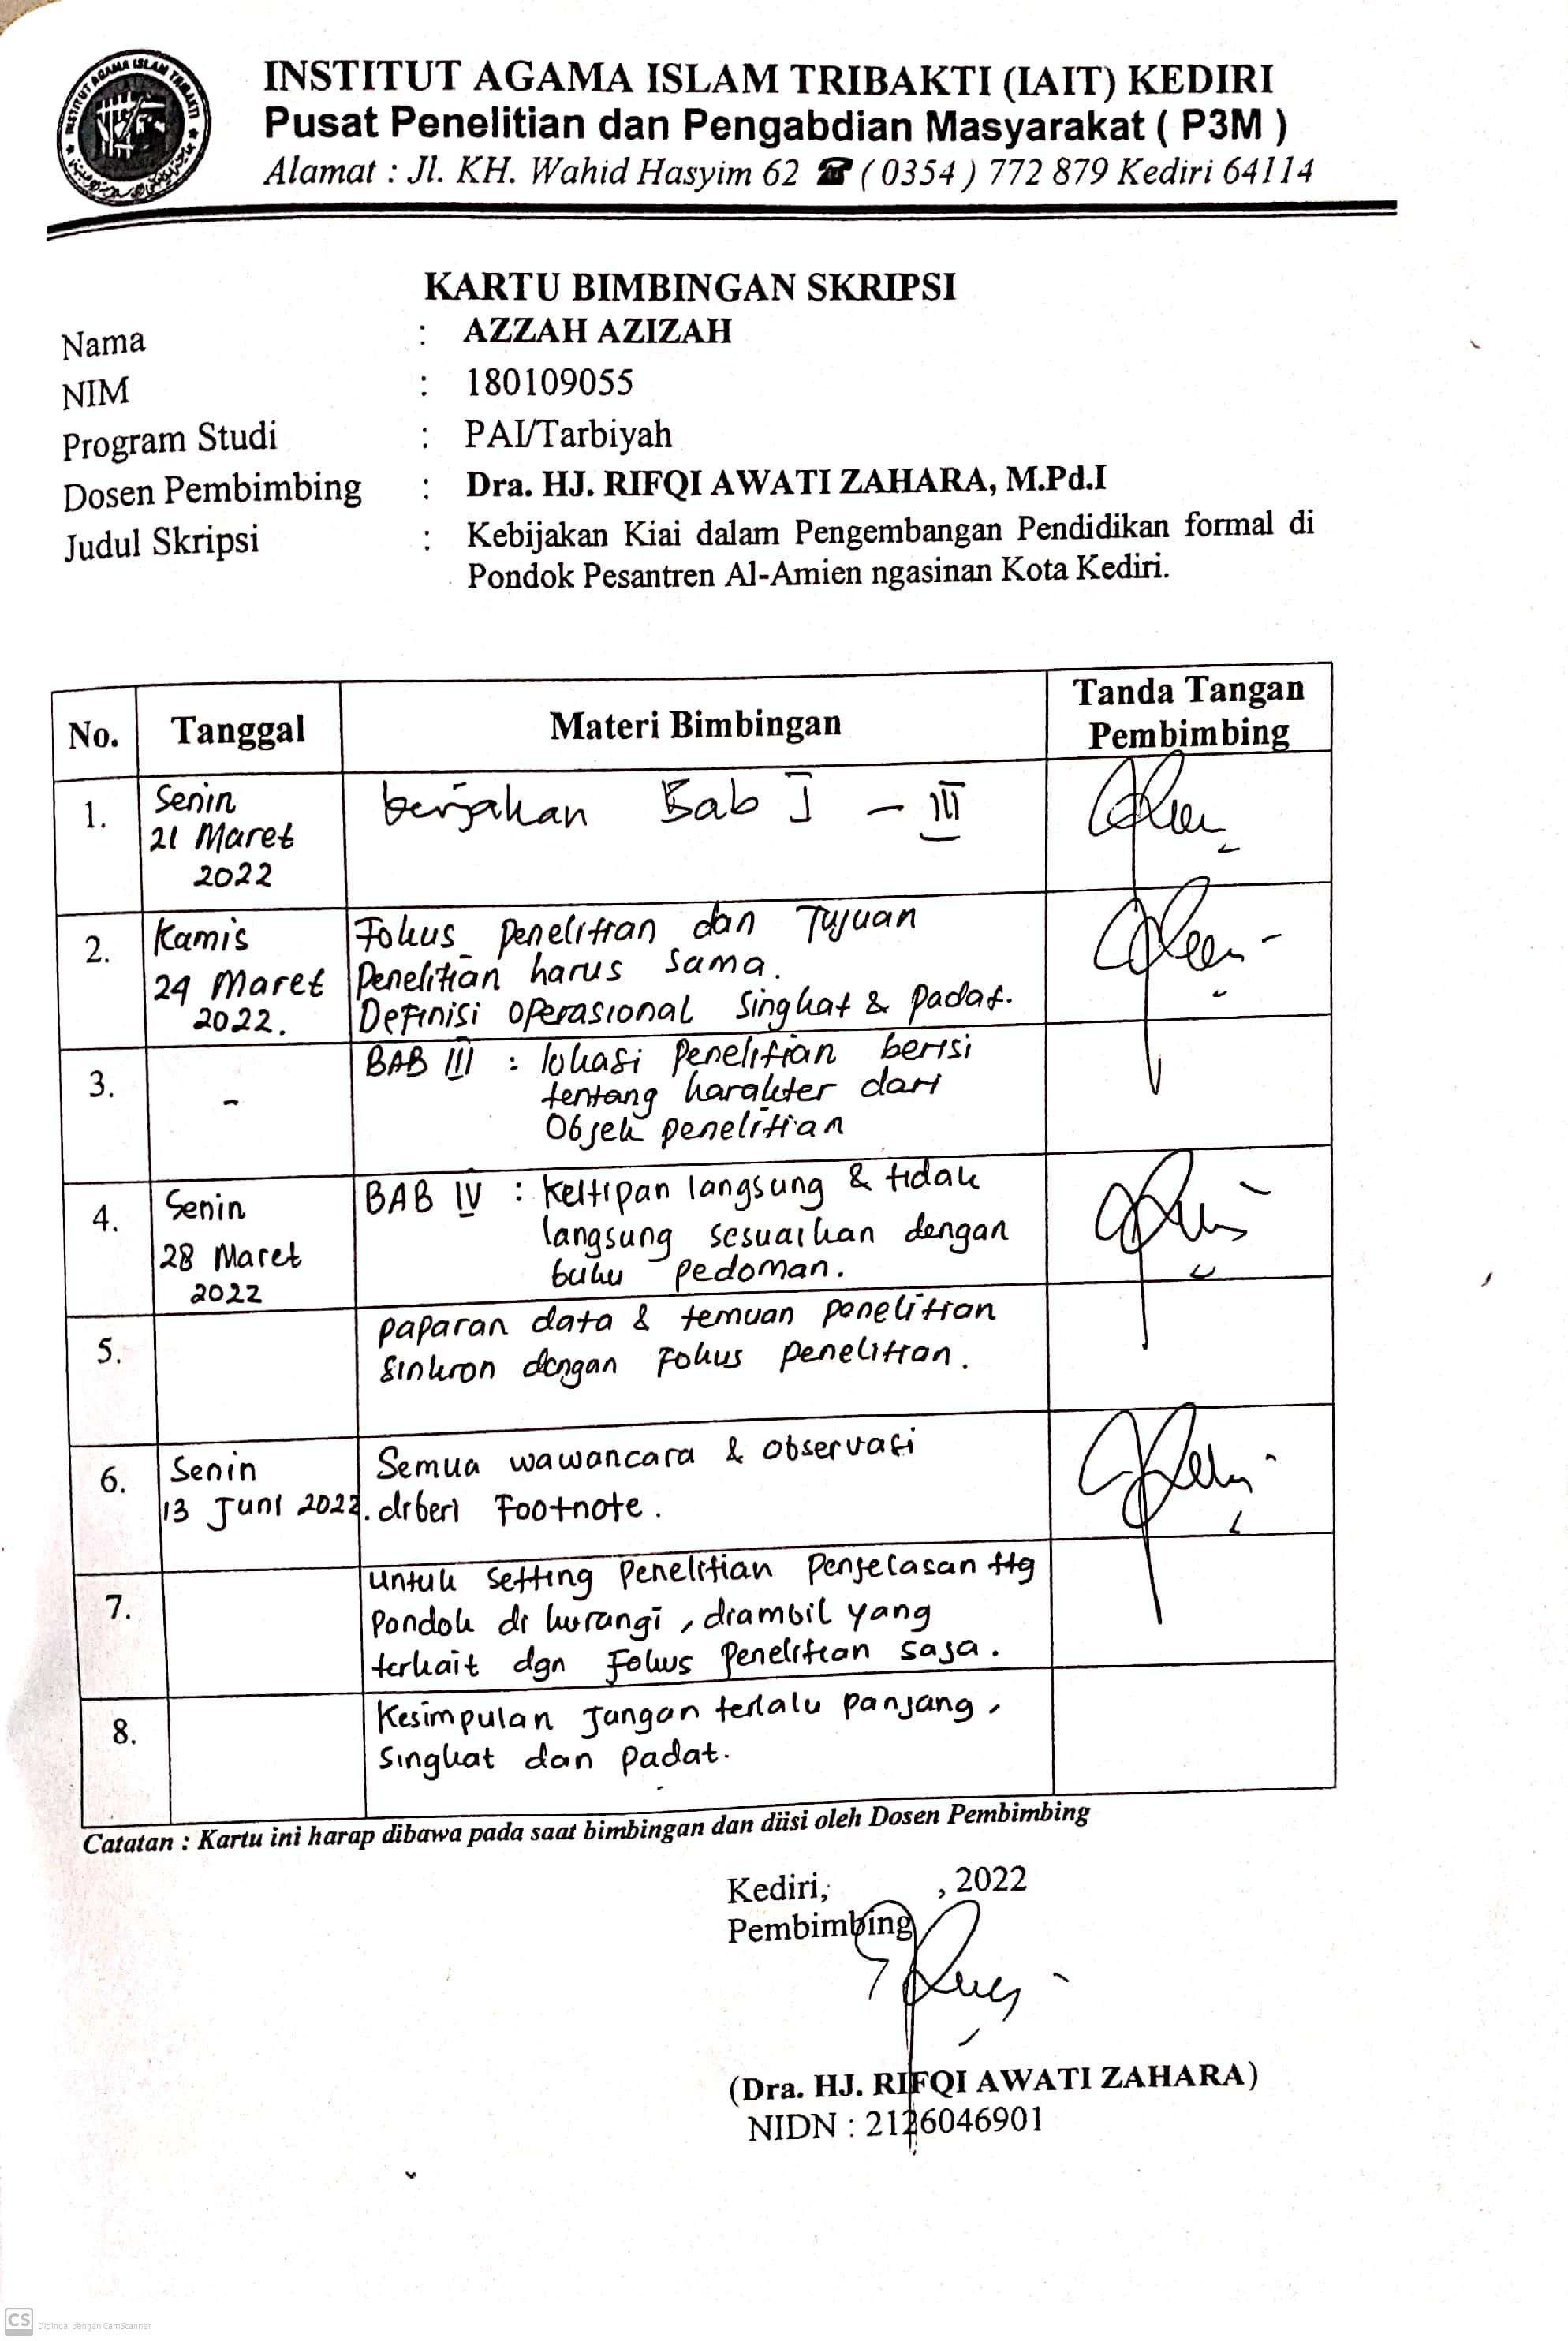 INSTITUT AGAMA ISLAM TRIBAKTI
INSTITUT AGAMA ISLAM TRIBAKTI (IAIT) KEDIRI
Pusat Penelitian dan Pengabdian Masyarakat ( P3M )
Alamat : Jl. KH. Wahid Hasyim 62 ☎ ( 0354 ) 772 879 Kediri 64114
KARTU BIMBINGAN SKRIPSI
Nama : AZZAH AZIZAH
NIM : 180109055
Program Studi : PAI/Tarbiyah
Dosen Pembimbing : Dra. HJ. RIFQI AWATI ZAHARA, M.Pd.I
Judul Skripsi : Kebijakan Kiai dalam Pengembangan Pendidikan formal di
Pondok Pesantren Al-Amien ngasinan Kota Kediri.
No. Tanggal Materi Bimbingan Tanda Tangan
Pembimbing
1. Senin Bab I - III
21 Maret
2022
2. Kamis Fokus penelitian dan Tujuan
24 Maret Penelitian harus sama.
2022. Definisi operasional singkat & padat.
3. - BAB III : lokasi penelitian berisi
tentang karakter dari
Objek penelitian
4. Senin BAB IV : Kutipan langsung & tidak
28 Maret langsung sesuaikan dengan
2022 buku pedoman.
5. paparan data & temuan penelitian
sinkron dengan Fokus penelitian.
6. Senin Semua wawancara & observasi
13 Juni 2022. diberi Footnote.
7. untuk setting penelitian penjelasan ttg
Pondok di kurangi, diambil yang
terkait dgn Fokus penelitian saja.
8. Kesimpulan Jangan terlalu panjang,
Singkat dan padat.
Catatan : Kartu ini harap dibawa pada saat bimbingan dan diisi oleh Dosen Pembimbing
Kediri, , 2022
Pembimbing
(Dra. HJ. RIFQI AWATI ZAHARA)
NIDN : 2126046901
CS Dipindai dengan CamScanner